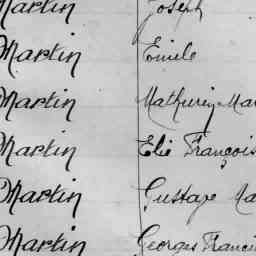 Martin Joseph
Martin Emile
Martin Mathurin Mar
Martin Elie François
Martin Gustave Ma
Martin Georges Franci